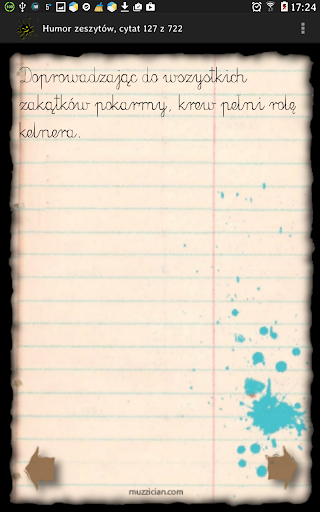 5°
17:24
Humor zeszytów, cytat 127 z 722
Doprowadzając do wszystkich
zakątków pokarmy, krew pełni rolę
kelnera.
muzzician.com